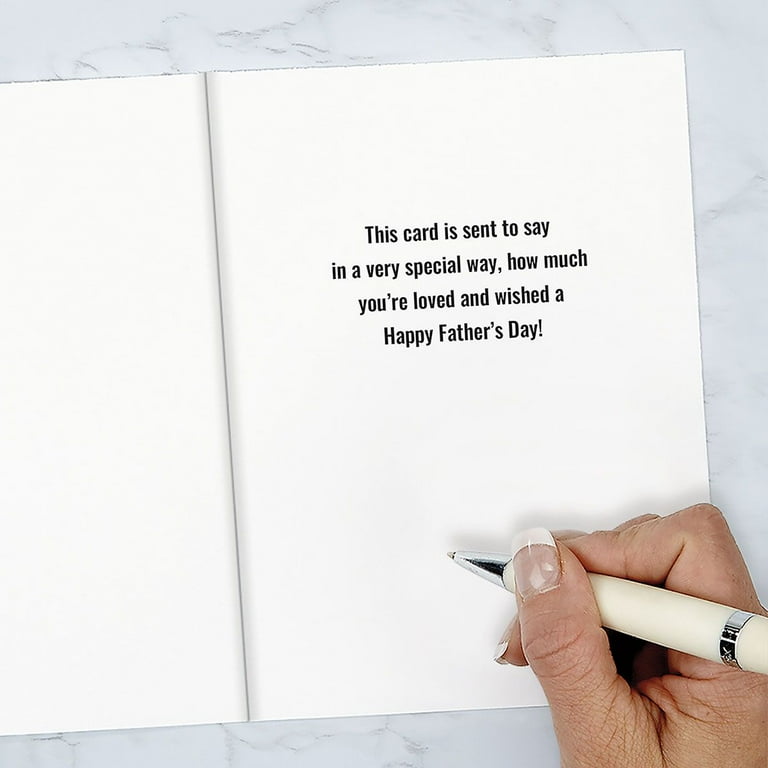 This card is sent to say
in a very special way, how much
you're loved and wished a
Happy Father's Day!